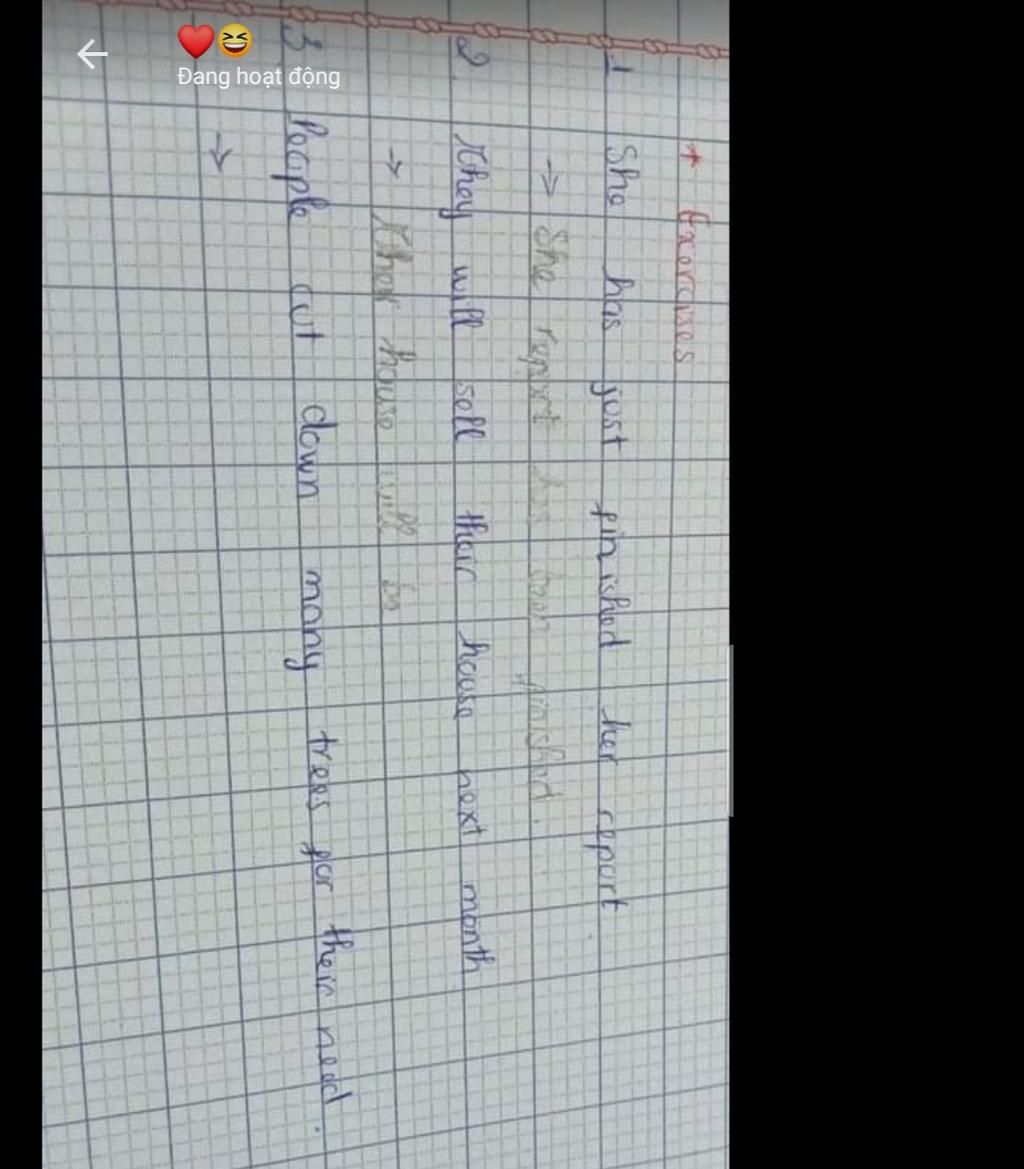 ❤️😆
Đang hoạt động
+ Exercises
1 She has just finished her report.
→ She report has been finished.
2 They will sell their house next month
→ Ther house will be
3 People cut down many trees for their need.
→